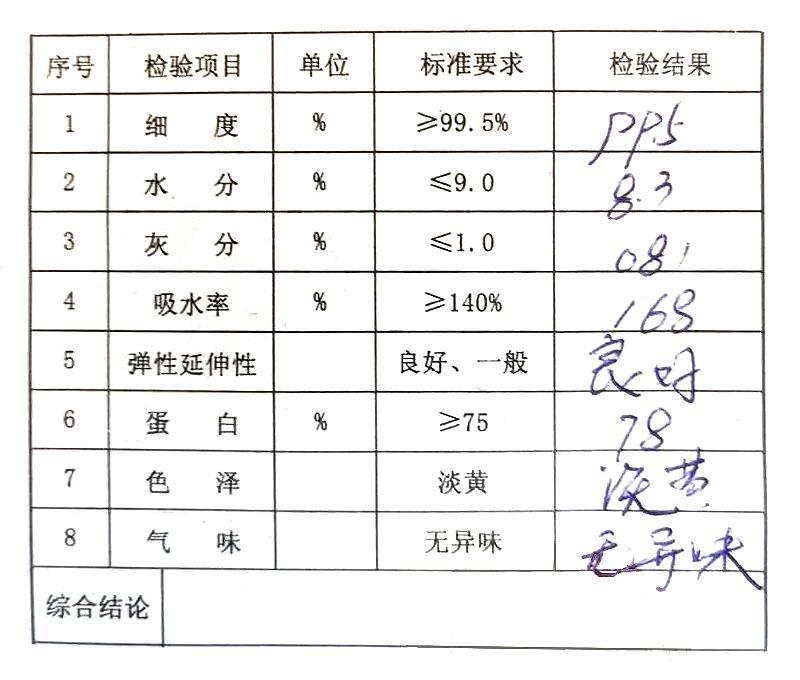 序号 检验项目 单位 标准要求 检验结果
1 细度 % ≥99.5% 99.5
2 水分 % ≤9.0 8.3
3 灰分 % ≤1.0 081
4 吸水率 % ≥140% 168
5 弹性延伸性 良好、一般 良好
6 蛋白 % ≥75 78
7 色泽 淡黄 淡黄
8 气味 无异味 无异味
综合结论